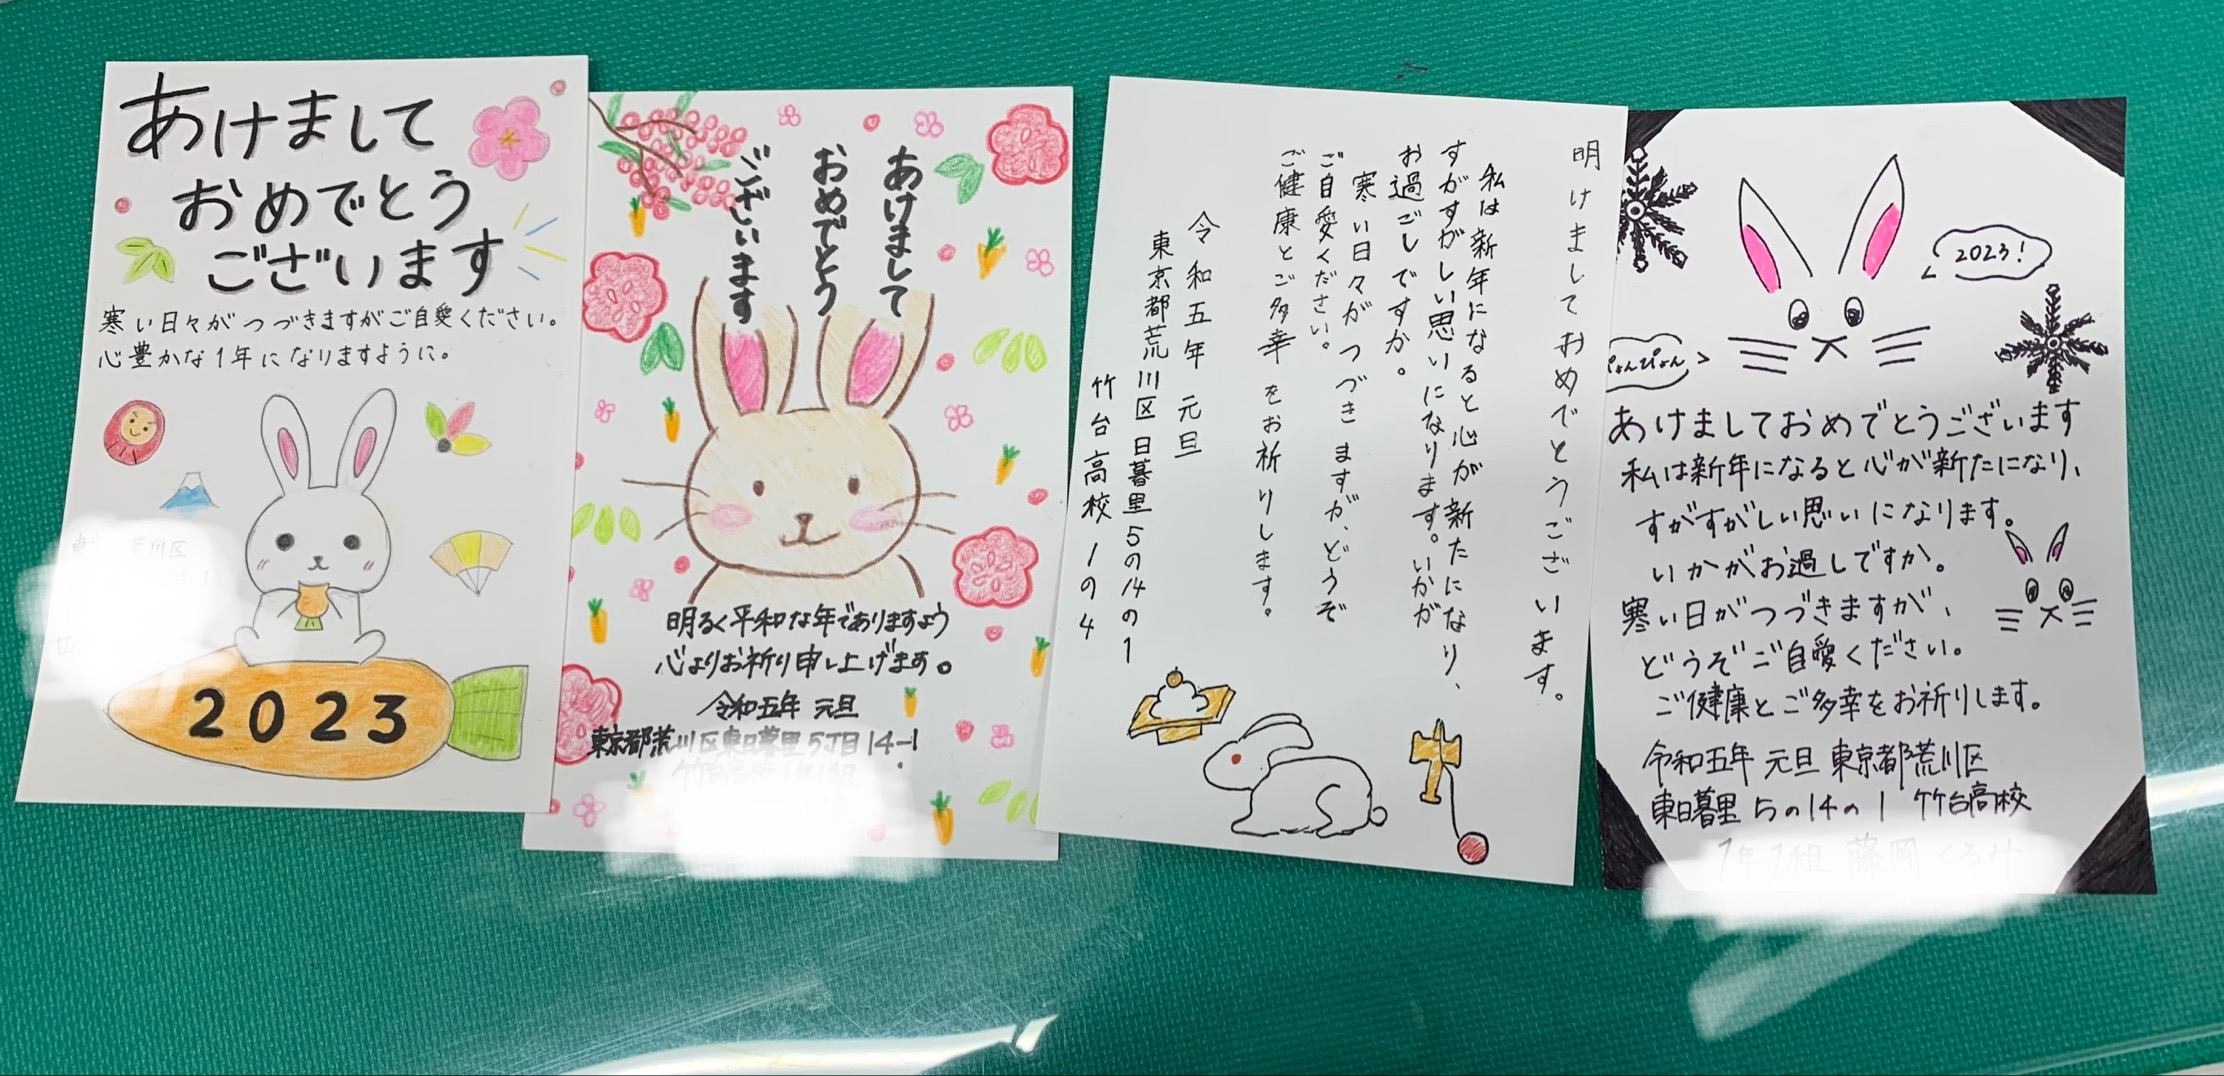 あけまして
おめでとう
ございます
寒い日々がつづきますがご自愛ください。
心豊かな1年になりますように。
荒川区
2023
あけまして
おめでとう
ございます
明るく平和な年でありますよう
心よりお祈り申し上げます。
令和五年 元旦
東京都荒川区東日暮里5丁目14-1
竹台高校1年1組
明けましておめでとうございます。
私は新年になると心が新たになり、
すがすがしい思いになります。いかが
お過ごしですか。
寒い日々がつづきますが、どうぞ
ご自愛ください。
ご健康とご多幸をお祈りします。
令和五年 元旦
東京都荒川区日暮里5の14の1
竹台高校 1の4
2023!
ぴょんぴょん
あけましておめでとうございます
私は新年になると心が新たになり、
すがすがしい思いになります。
いかがお過しですか。
寒い日がつづきますが、
どうぞご自愛ください。
ご健康とご多幸をお祈りします。
令和五年 元旦 東京都荒川区
東日暮里5の14の1 竹台高校
1年1組 藤岡くるみ